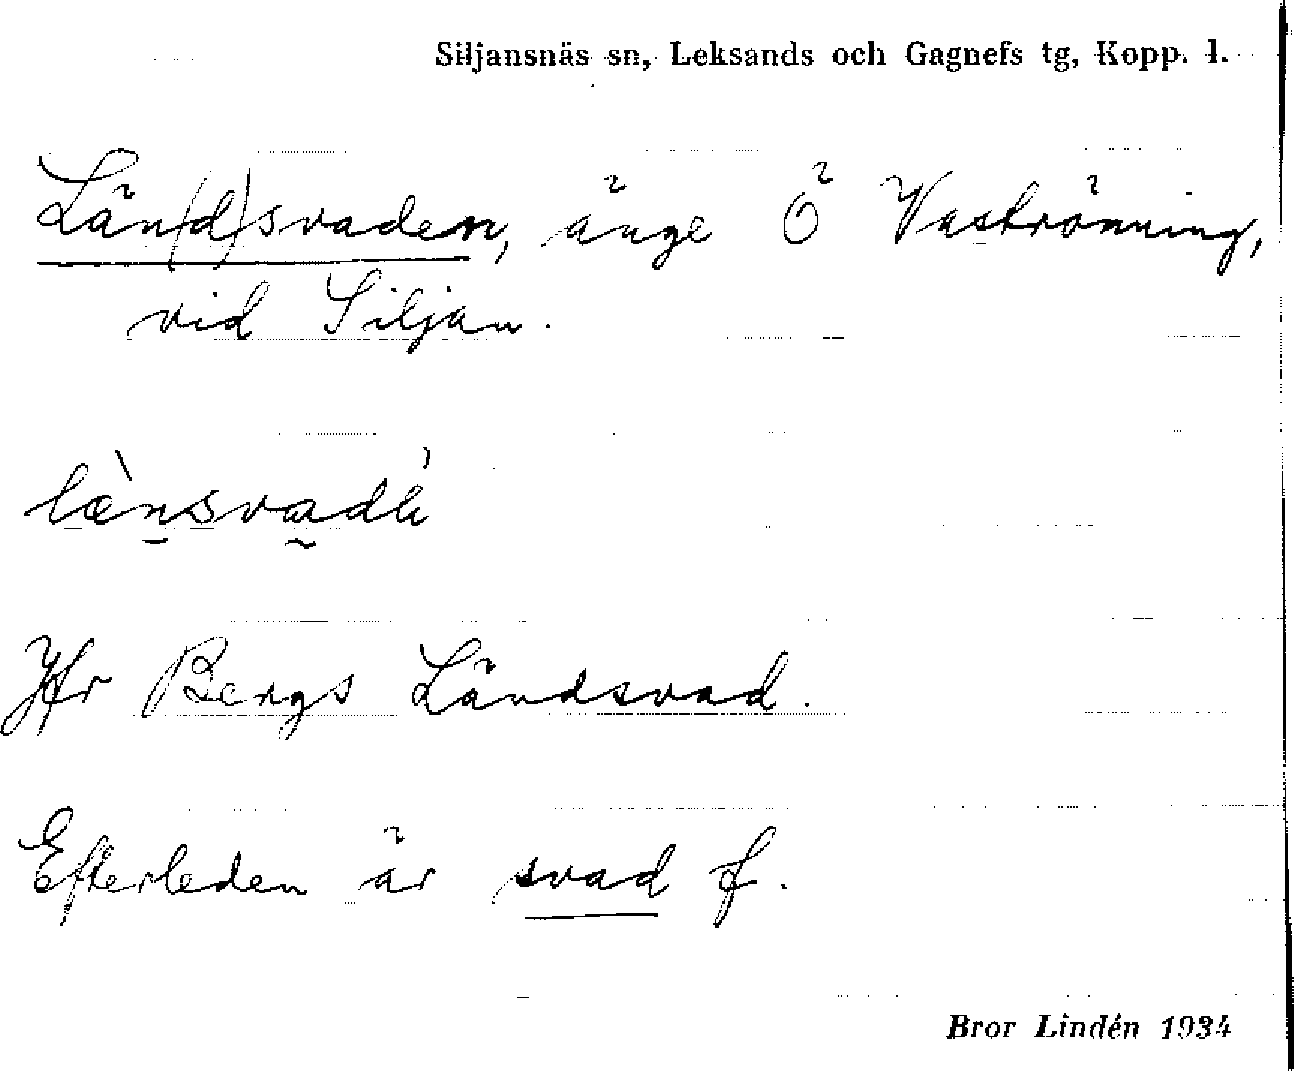 Siljansnäs sn, Leksands och Gagnefs tg, Kopp. l.
Län(d)svaden, änge Ö Vaströnning,
vid Siljan.
lænsvadh
Jfr Bergs Ländsvad.
Efterleden är svad f.
Bror Lindén 1934